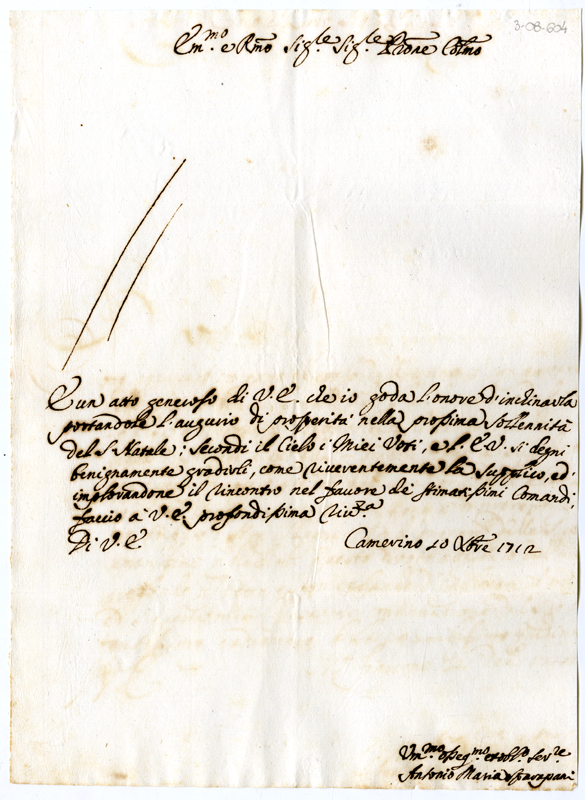 3-08-604
Em.mo e Rmo Sig.re Sig.re Prone Colmo
È un atto generoso di V.E. che io goda l'onore d'inchinarla
portandole l'augurio di prosperità nella prossima sollennità
del S. Natale; Secondi il Cielo i Miei Voti, e l'E.V. si degni
benignamente gradirli, come riverentemente la supplico, ed
implorandone il rincontro nel favore de' stimatissimi Comandi,
faccio a V.E. profondissima riv.za
Di V.E.
Camerino 10 Xbre 1712
Um.mo osseq.mo et obl.o Ser.re
Antonio Maria